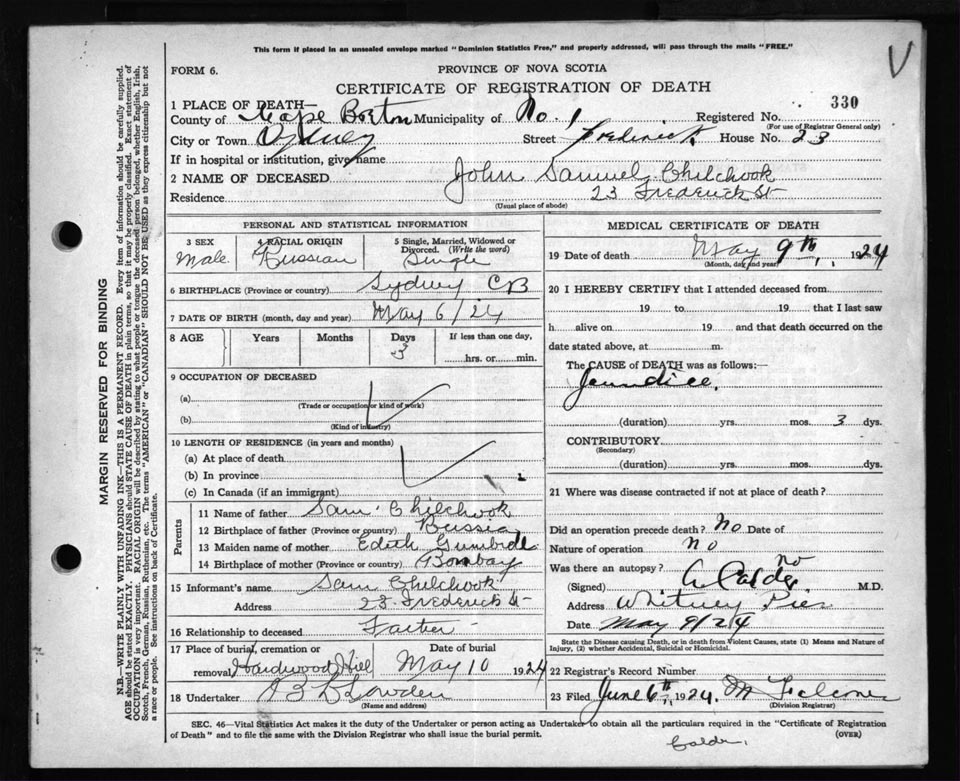 This form if placed in an unsealed envelope marked "Dominion Statistics Free," and properly addressed, will pass through the mails "FREE."
V
FORM 6.
PROVINCE OF NOVA SCOTIA
CERTIFICATE OF REGISTRATION OF DEATH
330
1 PLACE OF DEATH—
County of Cape Breton Municipality of No. 1 Registered No.
(For use of Registrar General only)
City or Town Sydney Street Frederick House No. 23
If in hospital or institution, give name
2 NAME OF DECEASED John Samuel Chilchook
Residence 23 Frederick St
(Usual place of abode)
PERSONAL AND STATISTICAL INFORMATION
3 SEX 4 RACIAL ORIGIN 5 Single, Married, Widowed or Divorced. (Write the word)
Male Russian Single
6 BIRTHPLACE (Province or country) Sydney CB
7 DATE OF BIRTH (month, day and year) May 6/24
8 AGE Years Months Days If less than one day,
3 hrs. or min.
9 OCCUPATION OF DECEASED
(a)
(Trade or occupation or kind of work)
(b)
(Kind of industry)
10 LENGTH OF RESIDENCE (in years and months)
(a) At place of death
(b) In province
(c) In Canada (if an immigrant)
Parents
11 Name of father Sam Chilchook
12 Birthplace of father (Province or country) Russia
13 Maiden name of mother Edith
14 Birthplace of mother (Province or country) Bombay
15 Informant's name Sam Chilchook
Address 23 Frederick St
16 Relationship to deceased Father
17 Place of burial, cremation or removal Date of burial
Hardwood Hill May 10 1924
18 Undertaker Lowden
(Name and address)
MEDICAL CERTIFICATE OF DEATH
19 Date of death May 9th, 1924
(Month, day and year)
20 I HEREBY CERTIFY that I attended deceased from
19 to 19 that I last saw
h alive on 19 and that death occurred on
date stated above, at m.
The CAUSE OF DEATH was as follows:—
Jaundice
(duration) yrs. mos. 3 dys.
CONTRIBUTORY
(Secondary)
(duration) yrs. mos. dys.
21 Where was disease contracted if not at place of death?
Did an operation precede death? No Date of
Nature of operation no
Was there an autopsy? no
(Signed) Calder M.D.
Address Whitney Pier
Date May 9/24
State the Disease causing Death, or in death from Violent Causes, state (1) Means and Nature of
Injury, (2) whether Accidental, Suicidal or Homicidal.
22 Registrar's Record Number
23 Filed June 6th, 1924. M Falconer
(Division Registrar)
SEC. 46—Vital Statistics Act makes it the duty of the Undertaker or person acting as Undertaker to obtain all the particulars required in the "Certificate of Registration
of Death" and to file the same with the Division Registrar who shall issue the burial permit.
(OVER)
Calder,
MARGIN RESERVED FOR BINDING
N.B.—WRITE PLAINLY WITH UNFADING INK—THIS IS A PERMANENT RECORD. Every item of information should be carefully supplied.
AGE should be stated EXACTLY. PHYSICIANS should STATE CAUSE OF DEATH in plain terms, so that it may be properly classified. Exact statement of
OCCUPATION is very important. RACIAL ORIGIN will be described by stating to what people or tongue the deceased person belonged, whether English, Irish,
Scotch, French, German, Russian, Ruthenian, etc. The terms "AMERICAN" or "CANADIAN" SHOULD NOT BE USED as they express citizenship but not
a race or people. See instructions on back of Certificate.